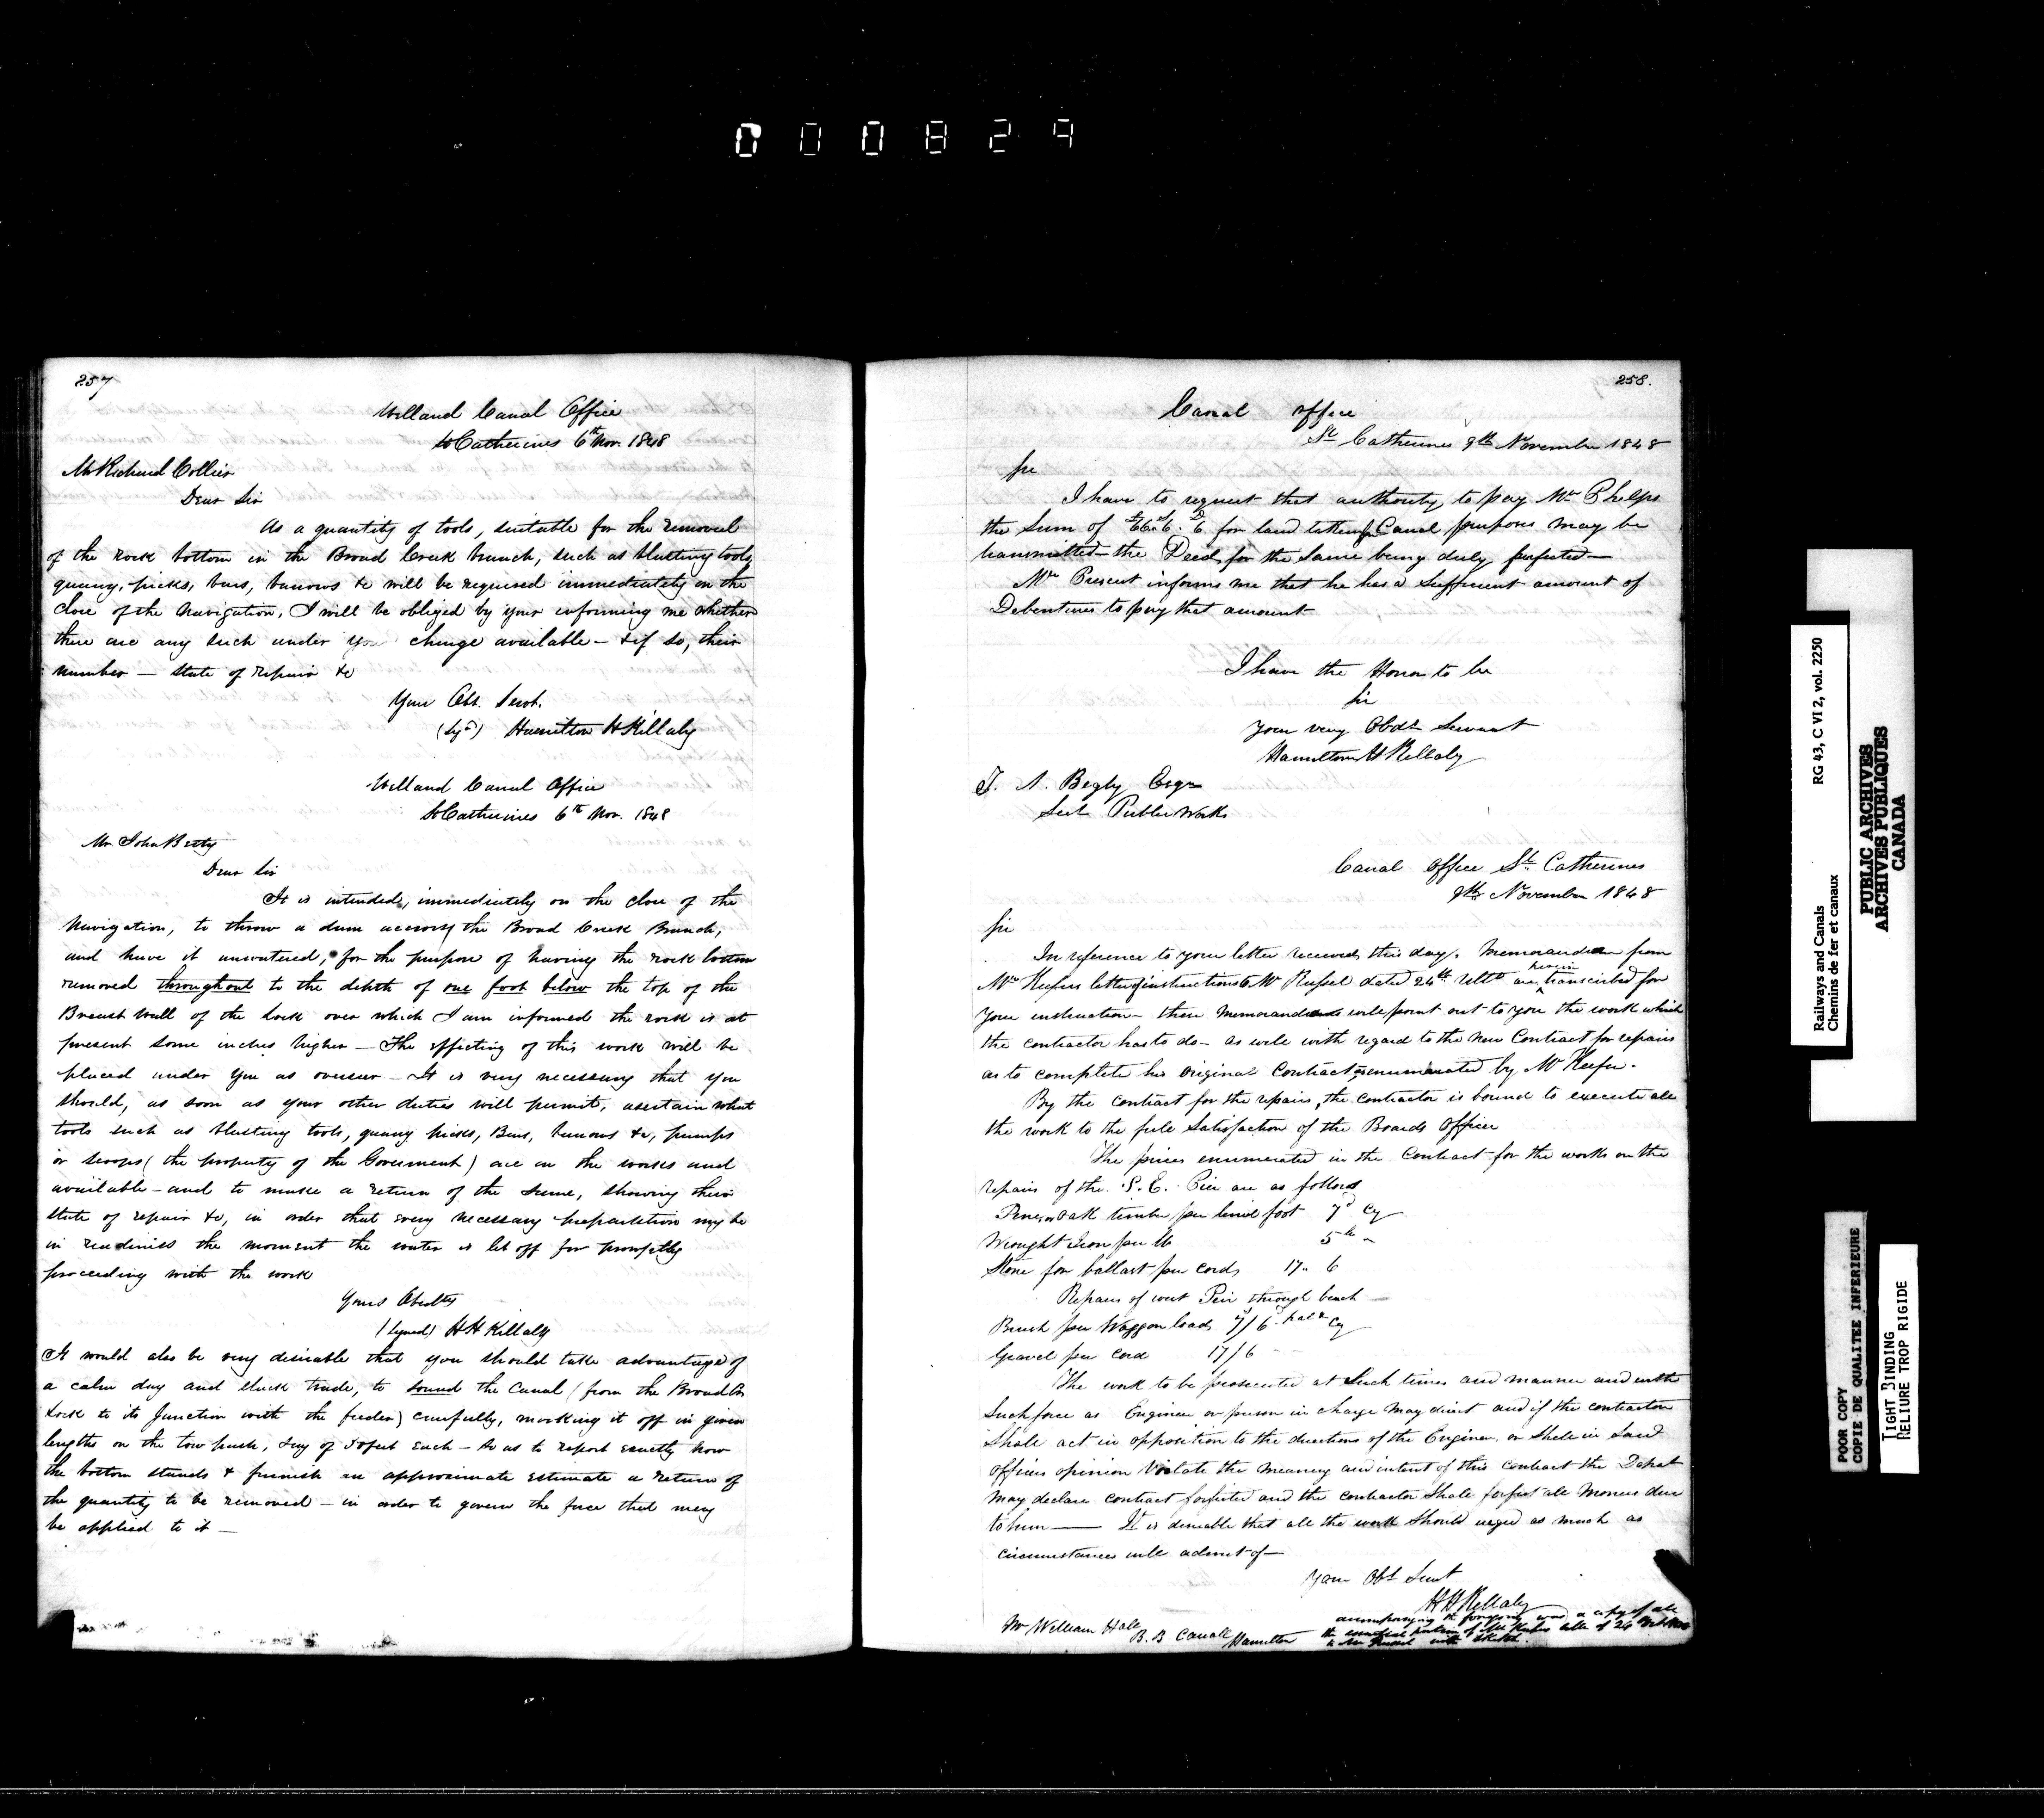 000829
257
Welland Canal Office
St Catherines 6th Nov. 1848
Mr Richard Collier
Dear Sir
As a quantity of tools, suitable for the removal
of the rock bottom in the Broad Creek branch, such as blasting tools,
quarry, picks, bars, barrows &c will be required immediately on the
close of the Navigation, I will be obliged by your informing me whether
there are any such under your charge available – & if so, their
number — state of repair &c
Your Obt. Servt.
(Sgd) Hamilton H Killaly
Welland Canal Office
St Catherines 6th Nov. 1848
Mr. John Betty
Dear Sir
It is intended, immediately on the close of the
Navigation, to throw a dam accross the Broad Creek Branch,
and have it unwatered, for the purpose of having the rock bottom
removed throughout to the depth of one foot below the top of the
Breast Wall of the Lock over which I am informed the rock is at
present some inches higher — The effecting of this work will be
placed under you as overseer – It is very necessary that you
should, as soon as your other duties will permit, asertain what
tools such as blasting tools, quarry picks, Bars, barrows &c, pumps
or scoops (the property of the Goverment) are on the works and
available – and to make a return of the same, showing their
state of repair &c, in order that every necessary preparation may be
in readiness the moment the water is let off for promptly
proceeding with the work
Yours Obedtly
(Signed) H H Killaly
It would also be very desirable that you should take advantage of
a calm day and slack trade, to sound the Canal (from the Broad Cr
Lock to its Junction with the feeder) carefully, marking it off in given
lengths on the tow path, say of 50 feet each – so as to report exactly how
the bottom stands & furnish an approximate estimate a return of
the quantity to be removed – in order to govern the force that may
be applied to it —
258.
Canal Office
St Catherines 9th November 1848
Sir
I have to request that authority to pay Mr Phelps
the Sum of for land taken for Canal purposes may be
transmitted – the Deed for the Same being duly perfected —
Mr Prescut informs me that he has a Sufficient amount of
Debentures to pay that amount
I have the Honor to be
Sir
Your very Obdt Servant
Hamilton H Killaly
T. A. Begly Esqre
Sect Public Works
Canal Office St Catherines
9th November 1848
Sir
In reference to your letter received this day. Memorandum from
Mr Keefers letter of instructions to Mr Russel dated 24th Ulto are herein transcribed for
your instruction – these Memorandums will point out to you the work which
the contractor has to do – as well with regard to the New Contract for repairs
as to complete his Original Contract as enumerated by Mr Keefer.
By the Contract for the repairs, the contractor is bound to execute all
the work to the full Satisfaction of the Boards Officer
The prices enumerated in the Contract for the works on the
repairs of the S. E. Pier are as follows
Pine or Oak timber per lineal foot 7d Cy
Wrought Iron per lb 5d "
Stone for ballast per Cord, 17 " 6
Repairs of west Pier through beach —
Brush per Waggon load, 7/6 Cy
Gravel per Cord 17/6
The work to be prosecuted at Such times and manner and with
Such force as Engineer or person in charge May direct and if the contractor
Shall act in opposition to the directions of the Engineer. or Shall in Said
Officers opinion Violate the Meaning and intent of this contract the Depat
May declare contract forfeited and the contractor Shall forfeit all Monies due
to him —— It is desirable that all the work Should urged as much as
Circumstances will admit of —
Your Obt Servt
H H Killaly
Mr William Hall
B. B Canal Hamilton
accompanying the foregoing was a copy of all
the portion of Mr Keefers letter of 24
to Mr Russel with Sketch.
Railways and Canals RG 43, C VI 2, vol. 2250
Chemins de fer et canaux
PUBLIC ARCHIVES
ARCHIVES PUBLIQUES
CANADA
POOR COPY
COPIE DE QUALITEE INFERIEURE
TIGHT BINDING
RELIURE TROP RIGIDE